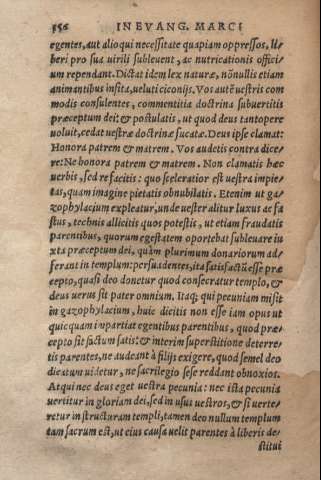 356 IN EVANG. MARCI
egentes, aut alioqui necessitate quapiam oppressos. Li/
beri pro sua uirili subleuent, ac nutricationis offici/
um rependant. Dictat idem lex naturæ, nõnullis etiam
animantibus insita, ueluti ciconijs. Vos autē uestris com
modis consulentes, commentitia doctrina subuertitis
præceptum dei: & postulatis, ut quod deus tantopere
uoluit, cedat uestræ doctrinæ fucatæ. Deus ipse clamat:
Honora patrem & matrem. Vos audetis contra dice/
re: Ne honora patrem & matrem. Non clamatis hæc
uerbis, sed re facitis: quo sceleratior est uestra impie/
tas, quam imagine pietatis obnubilatis. Etenim ut ga/
zophylacium expleatur, unde uester alitur luxus ac fa
stus, technis allicitis quos potestis, ut etiam fraudatis
parentibus, quorum egestatem oportebat subleuare iu
xta præceptum dei, quàm plurimum donariorum ad/
ferant in templum: persuadentes, ita satisfactũ esse præ
cepto, quasi deo donetur quod consecratur templo, &
deus uerus sit pater omnium. Itaq; qui pecuniam misit
in gazophylacium, huic dicitis non esse iam opus ut
quicquam impartiat egentibus parentibus, quod præ/
cepto sit factum satis: & interim superstitione deterre/
tis parentes, ne audeant à filijs exigere, quod semel deo
dicatum uidetur, ne sacrilegio sese reddant obnoxios.
Atqui nec deus eget uestra pecunia: nec ista pecunia
uertitur in gloriam dei, sed in usus uestros, & si uerte/
retur in structuram templi, tamen deo nullum templum
tam sacrum est, ut eius causa uelit parentes à liberis de/
stitui